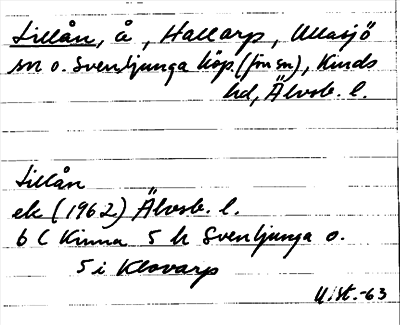 Lillån, å, Hallarp, Ullasjö
sn o. Svenljunga köp. (fm sn), Kinds
hd, Älvsb. l.
Lillån
ek (1962) Älvsb. l.
6 C Kinna 5 h Svenljunga o.
5 i Klovarp
U.st.-63